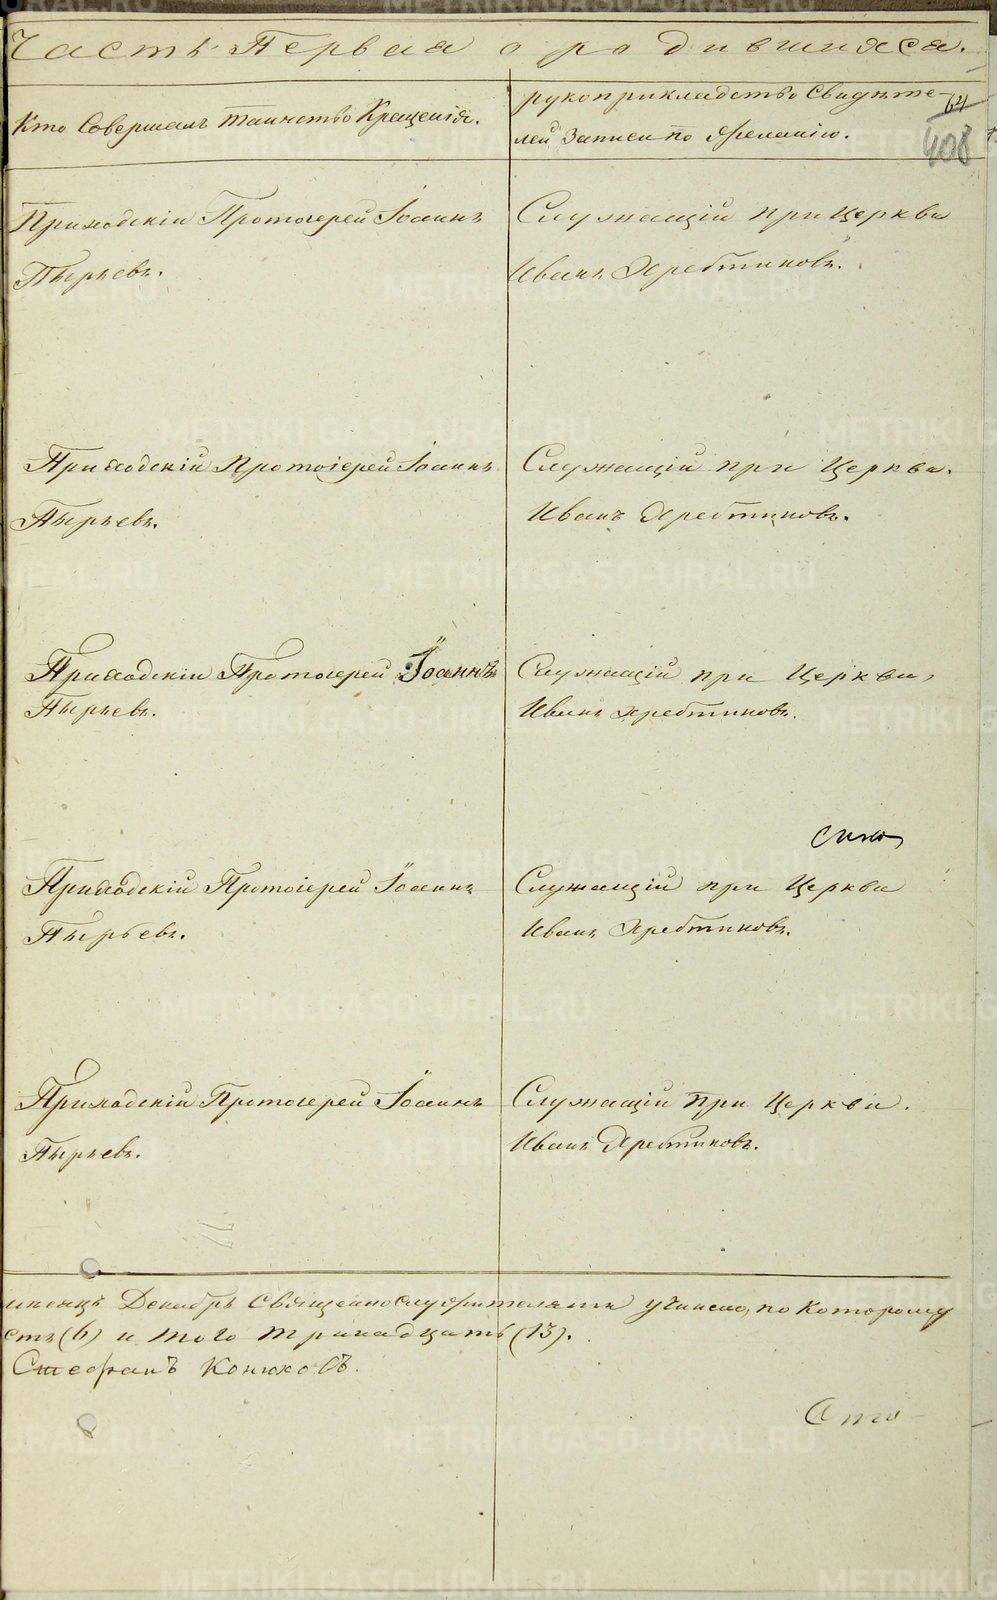 Часть Первая о родившихся.
Кто Совершалъ таинство Крещенія.
рукоприкладство Свидѣте-
лей Записи по Желанію.
64
408
Приходскій Протоіерей Іоаннъ
Пырьевъ.
Служащій при Церкви
Иванъ Хребтиковъ.
Приходскій Протоіерей Іоаннъ
Пырьевъ.
Служащій при Церкви.
Иванъ Хребтиковъ.
Приходскій Протоіерей Іоаннъ
Пырьевъ.
Служащій при Церкви,
Иванъ Хребтиковъ.
Приходскій Протоіерей Іоаннъ
Пырьевъ.
Служащій при Церкви
Иванъ Хребтиковъ.
Приходскій Протоіерей Іоаннъ
Пырьевъ.
Служащій при Церкви.
Иванъ Хребтиковъ.
Декабрь Священнослужителями учинено, по которому
сть (6) и того тринадцать (13).
Стефанъ Конюховъ.
METRIKI.GASO-URAL.RU